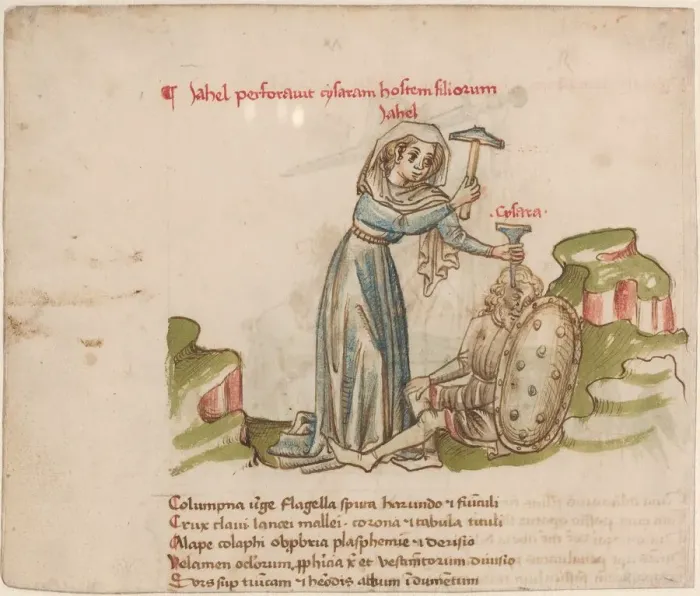 ¶ Jahel perforavit cysaram hostem filiorum
Jahel
. Cysara .
Columpna vge flagella sputa harundo ⁊ funiculi
Crux clavi lancei mallei . corona ⁊ tabula tituli
Alape colaphi obpbria plasphemie ⁊ derisio
Velamen oclorum, et vestimtorum divisio
Sors sup tunicam ⁊ herodis album